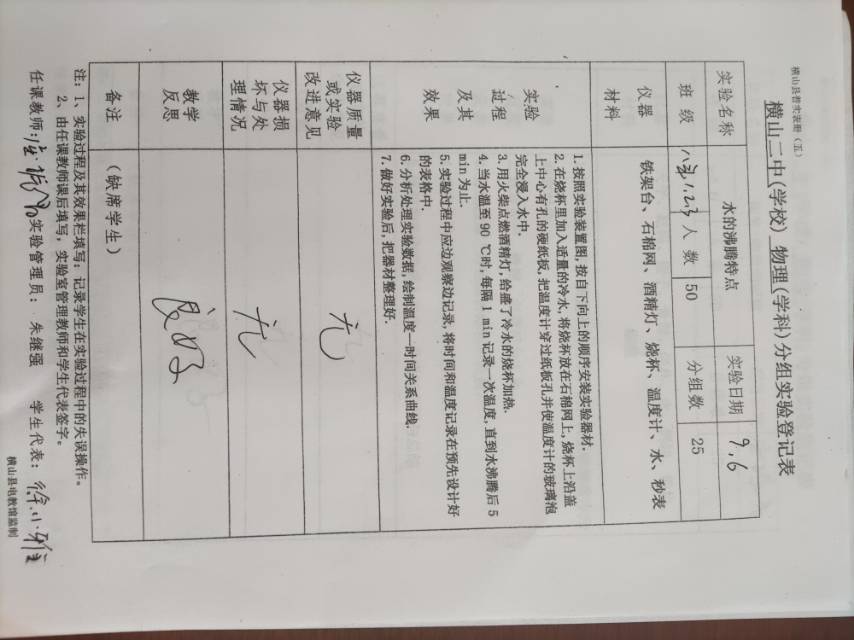 横山县普实表册（五）
横山二中(学校) 物理(学科)分组实验登记表
实验名称 水的沸腾特点 实验日期 9.6
班级 人数 50 分组数 25
仪器材料 铁架台、石棉网、酒精灯、烧杯、温度计、水、秒表
实验过程及其效果
1.按照实验装置图,按自下向上的顺序安装实验器材.
2.在烧杯里加入适量的冷水,将烧杯放在石棉网上,烧杯上沿盖
上中心有孔的硬纸板,把温度计穿过纸板孔并使温度计的玻璃泡
完全浸入水中.
3.用火柴点燃酒精灯,给盛了冷水的烧杯加热.
4.当水温至90 ℃时,每隔1 min记录一次温度,直到水沸腾后5
min为止.
5.实验过程中应边观察边记录,将时间和温度记录在预先设计好
的表格中.
6.分析处理实验数据,绘制温度—时间关系曲线.
7.做好实验后,把器材整理好.
仪器质量或实验改进意见 无
仪器损坏与处理情况 无
教学反思 良好
备注 （缺席学生）
注：1、实验过程及其效果栏填写：记录学生在实验过程中的失误操作。
2、由任课教师课后填写，实验室管理教师和学生代表签字。
任课教师: 实验管理员： 朱继强 学生代表：
横山县电教馆监制